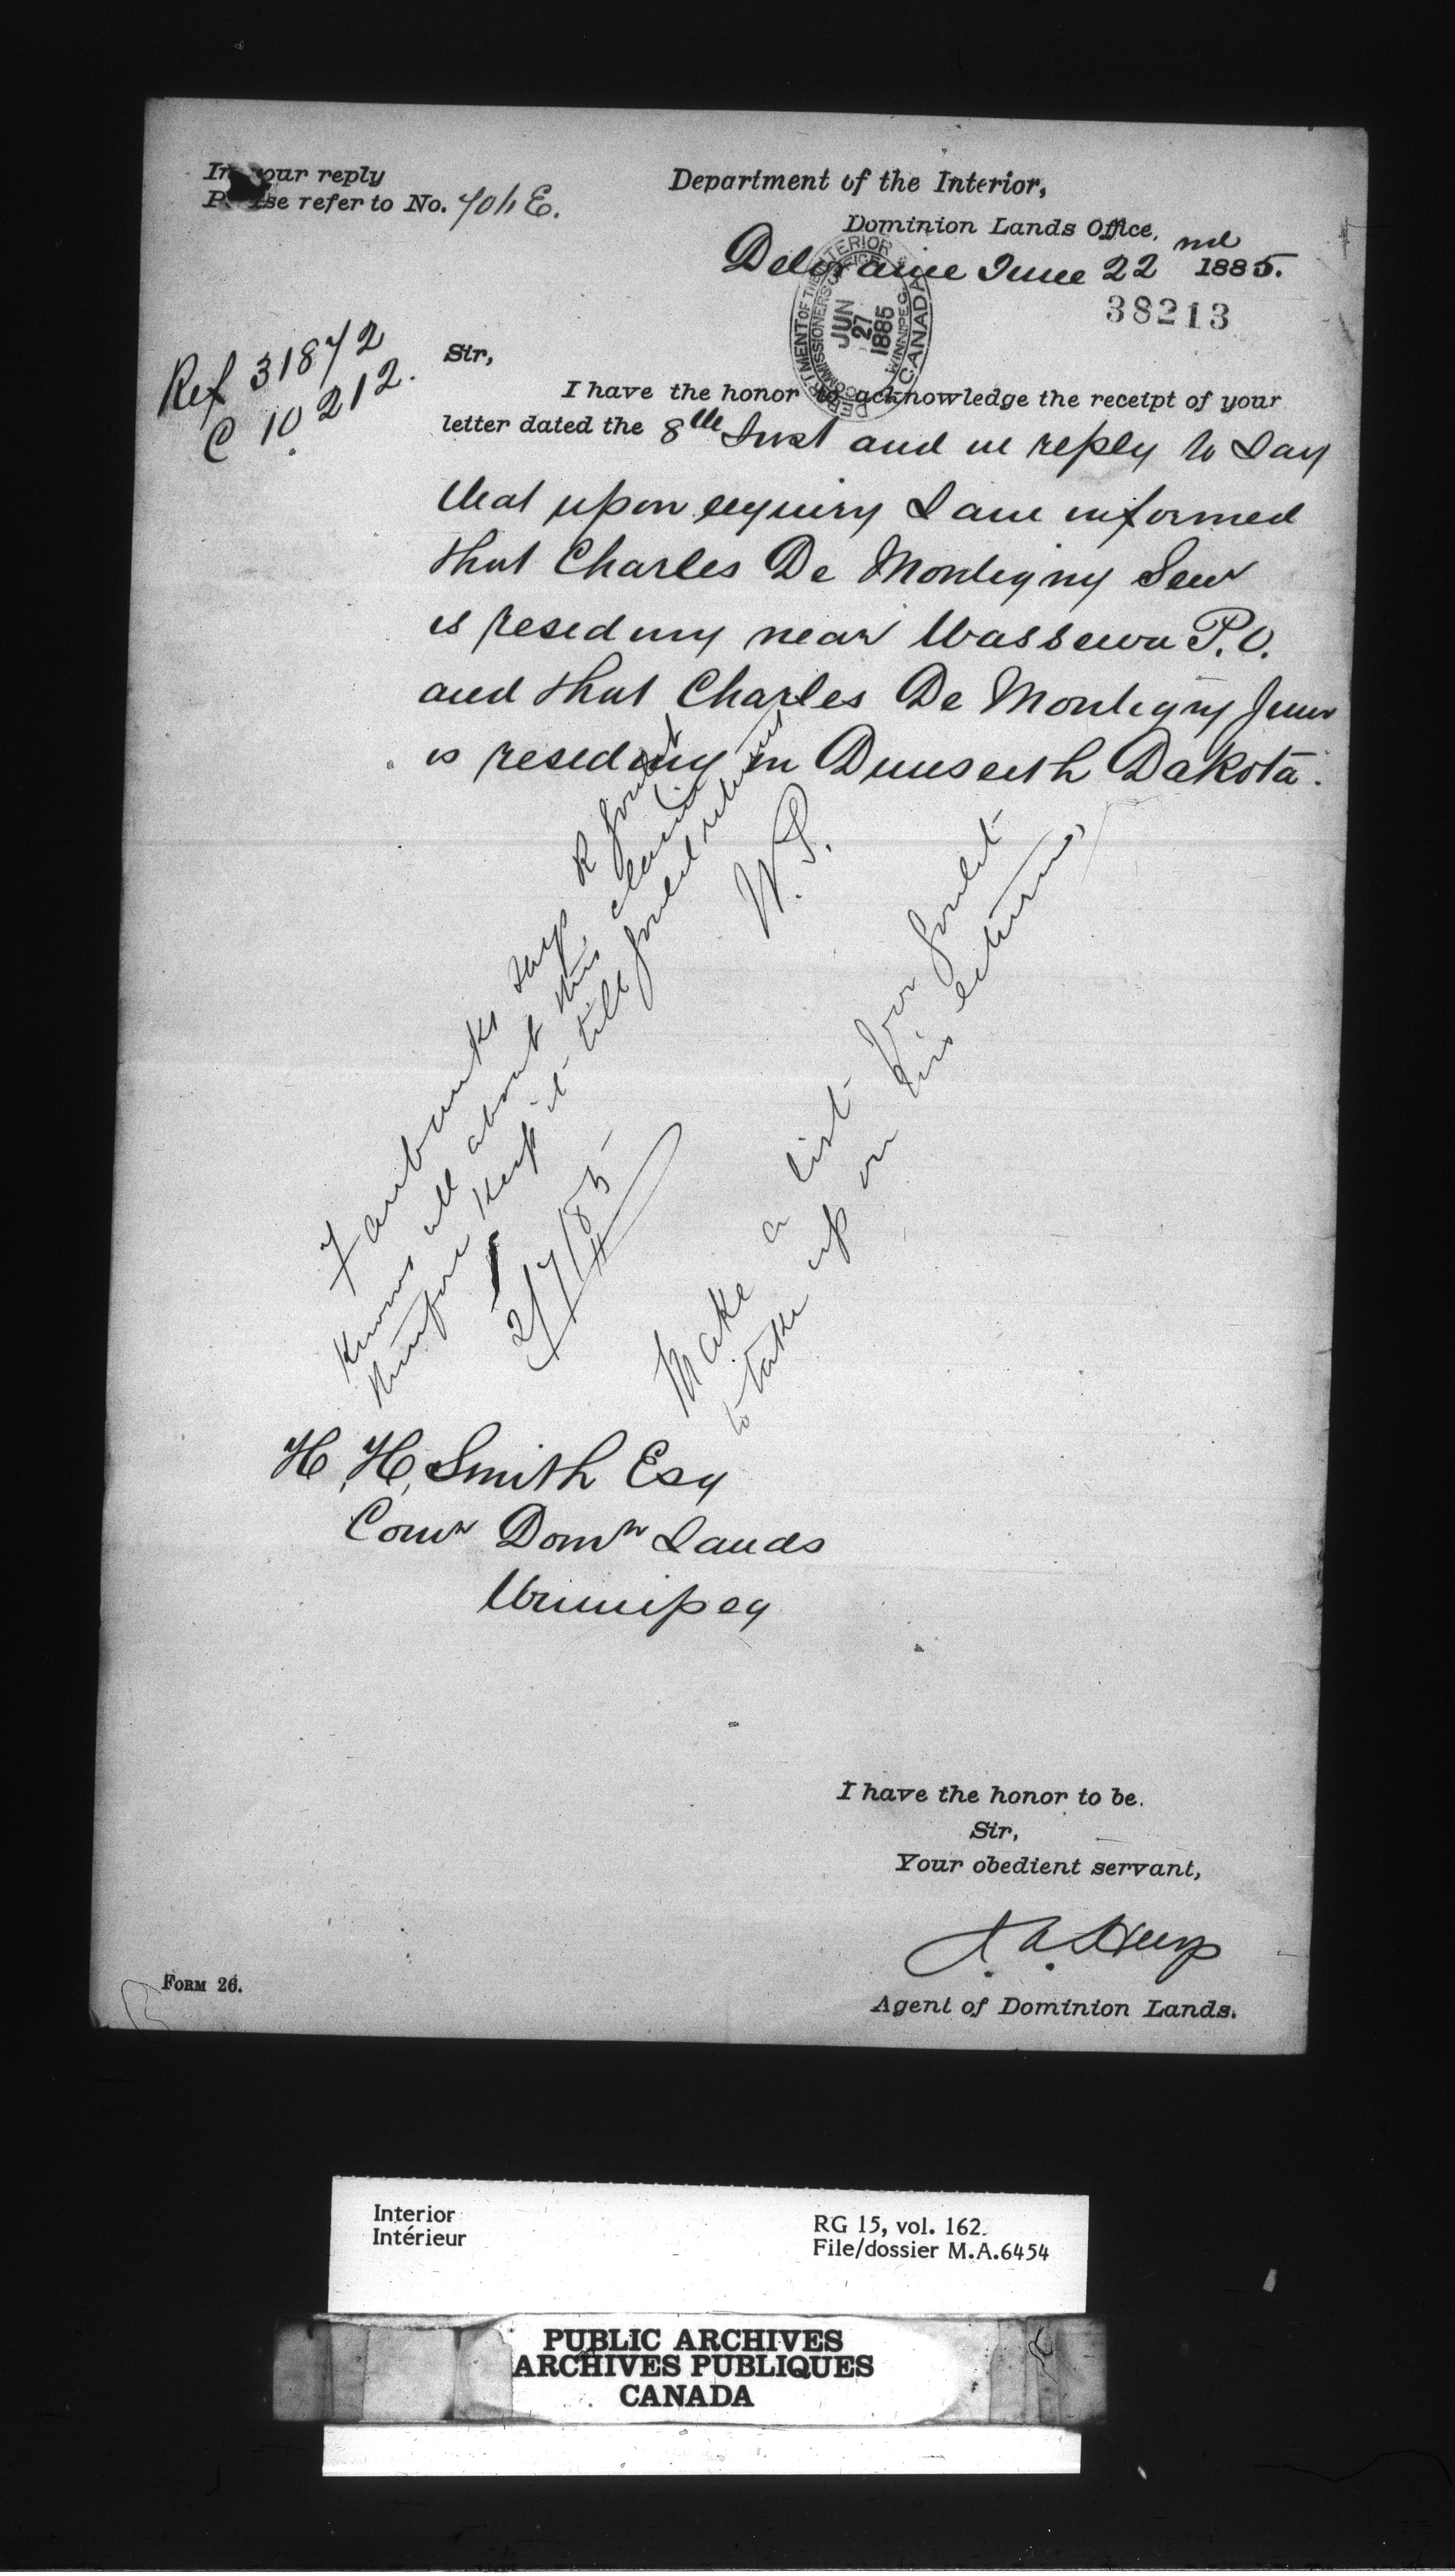 In your reply
Please refer to No. 704 E.
Department of the Interior,
Dominion Lands Office,
Deloraine June 22nd 1885.
38213
DEPARTMENT OF THE INTERIOR CANADA
COMMISSIONERS OFFICE WINNIPEG
JUN
27
1885
Ref 31872
C 10212.
Sir,
I have the honor to acknowledge the receipt of your
letter dated the 8th Inst and in reply to say
that upon enquiry I am informed
that Charles De Montigny Senr
is residing near Wassewa P.O.
and that Charles De Montigny Junr
is residing in Dunseith Dakota.
says R Goulet
knows all about this claim
therefore keep it till Goulet returns
W.P.
2/7/85
Make a list for Goulet
to take up on his return
H. H. Smith Esq
Comr Domn Lands
Winnipeg
I have the honor to be.
Sir,
Your obedient servant,
Agent of Dominion Lands.
FORM 26.
Interior
Intérieur
RG 15, vol. 162
File/dossier M.A.6454
PUBLIC ARCHIVES
ARCHIVES PUBLIQUES
CANADA